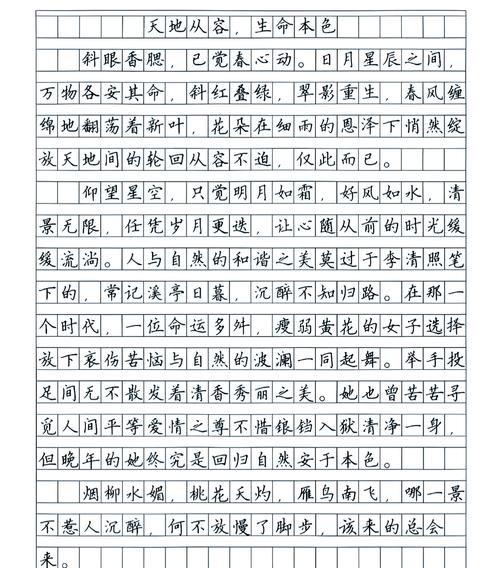 天地从容，生命本色
斜眼香腮，已觉春心动。日月星辰之间，
万物各安其命，斜红叠绿，翠影重生，春风缠
绵地翻荡着新叶，花朵在细雨的恩泽下悄然绽
放天地间的轮回从容不迫，仅此而已。
仰望星空，只觉明月如霜，好风如水，清
景无限，任凭岁月更迭，让心随从前的时光缓
缓流淌。人与自然的和谐之美莫过于李清照笔
下的，常记溪亭日暮，沉醉不知归路。在那一
个时代，一位命运多舛，瘦弱黄花的女子选择
放下哀伤苦恼与自然的波澜一同起舞。举手投
足间无不散发着清香秀丽之美。她也曾苦苦寻
觅人间平等爱情之尊不惜锒铛入狱清净一身，
但晚年的她终究是回归自然安于本色。
烟柳水媚，桃花夭灼，雁鸟南飞，哪一景
不惹人沉醉，何不放慢了脚步，该来的总会
来。